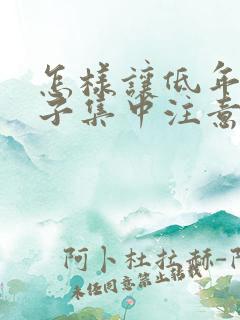 怎樣讓低年
子集中注意
阿卜杜拉赫-阿
未经同意禁止转载